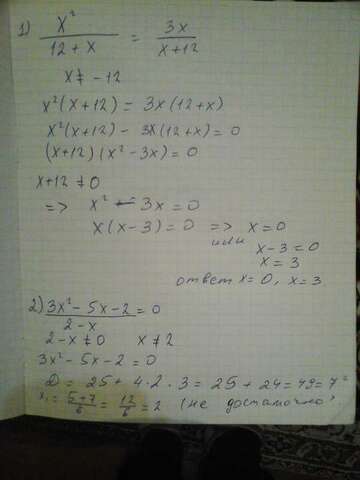 1) x² / (12 + x) = 3x / (x + 12)
x ≠ -12
x²(x+12) = 3x(12+x)
x²(x+12) - 3x(12+x) = 0
(x+12)(x² - 3x) = 0
x+12 ≠ 0
=> x² - 3x = 0
x(x-3) = 0 => x = 0
или x-3 = 0
x = 3
ответ x = 0, x = 3
2) (3x² - 5x - 2) / (2 - x) = 0
2 - x ≠ 0 x ≠ 2
3x² - 5x - 2 = 0
D = 25 + 4·2·3 = 25 + 24 = 49 = 7²
x₁ = (5+7)/6 = 12/6 = 2 (не достаточно)